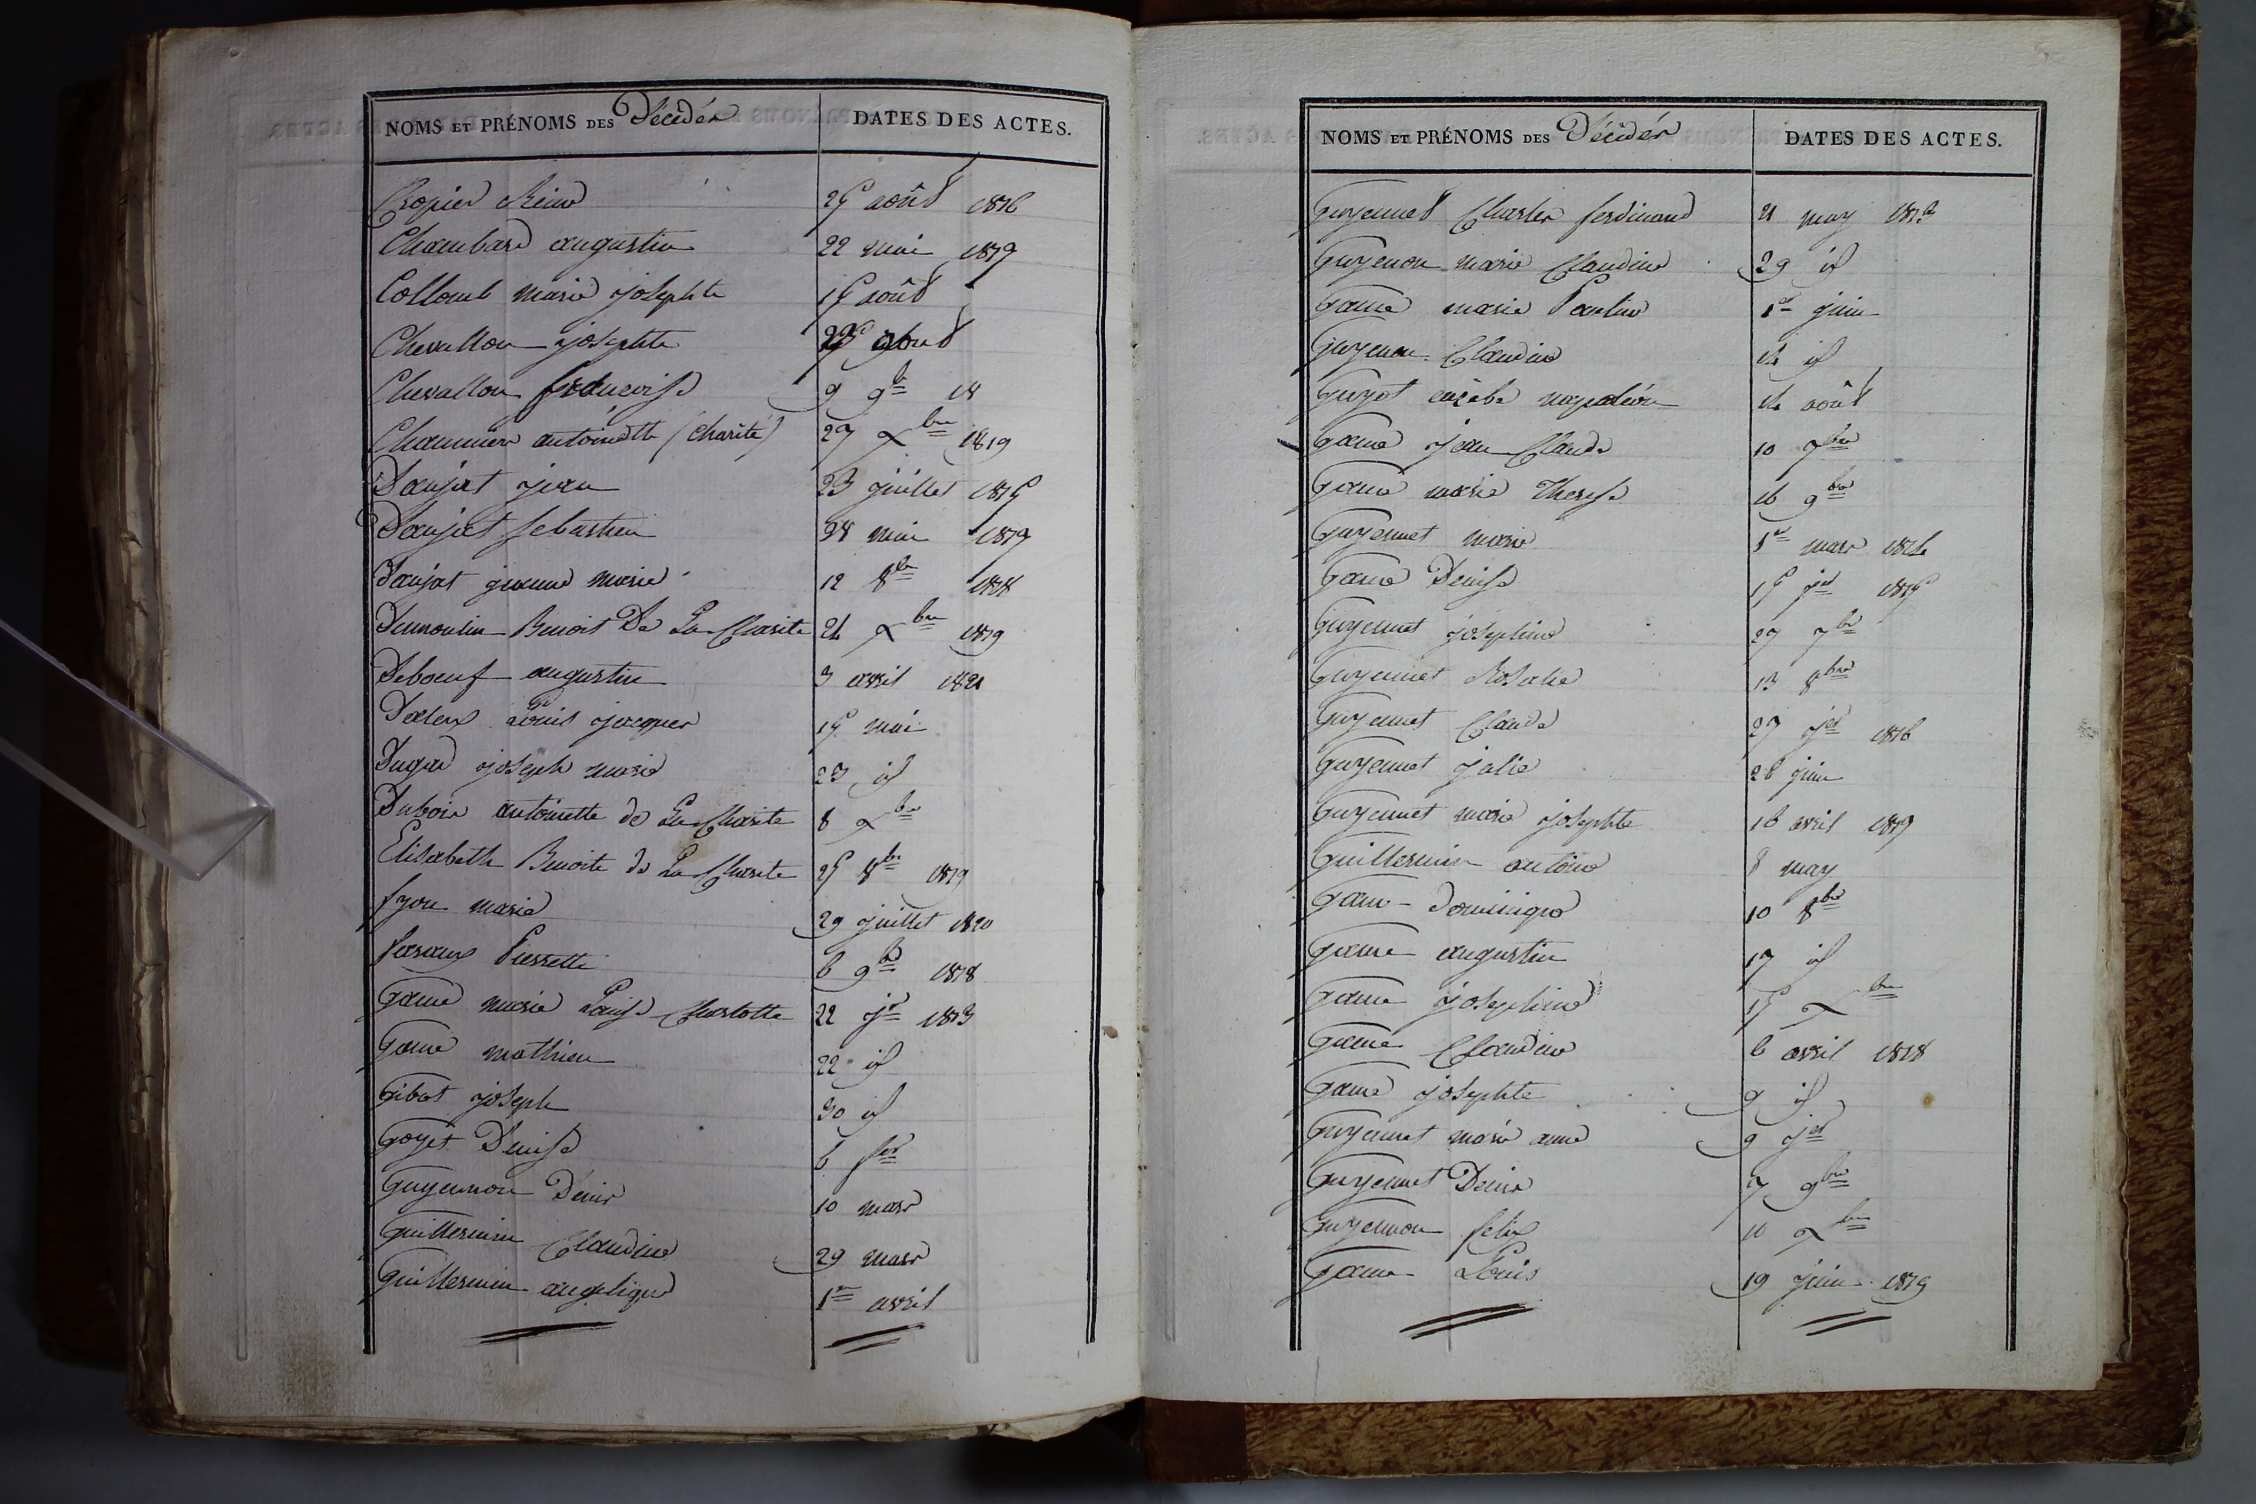 NOMS ET PRÉNOMS DES Décédés DATES DES ACTES.
Cropier Reine 25 août 1816
Chambard augustin 22 mai 1817
Collomb marie josephte 15 août
Chevallon josephte
Chevallon françoise 9 9b 18
Chammier antoinette (charité) 27 xbre 1819
Daujat jean 23 juillet 1815
Daujat sebastien 28 mai 1817
Daujat jeanne marie 12 8b 1818
Dumoulin Benoit De La Charite 24 xbre 1819
Deboeuf augustin 3 avril 1821
Dalex Louis jacques 15 mai
Dugad joseph marie 23 id
Dubois antoinette de La Charite 8 xbr
Elisabeth Benoite de La Charite 25 8bre 1819
fyon marie 29 juillet 1820
faraux Pierrette 6 9b 1818
Game marie Louise Charlotte 22 jr 1813
Game mathieu 22 id
Gibot joseph 30 id
Goyet Denise 6 fer
Guyennon Denis 10 mars
Guillermin Claudine 29 mars
Guillermin angelique 1er avril
NOMS ET PRÉNOMS DES Décédés DATES DES ACTES.
Guyennet Charles ferdinand 21 may 1813
Guyenon marie Claudine 29 id
Game marie Pauline 1er juin
Guyenon Claudine 14 id
Guyot euzèbe napoléon 14 août
Game jean Claude 10 7bre
Game marie Therese 16 9bre
Guyennet marie 1er mars 1814
Game Denise 15 jer 1815
Guyennet josephine 27 7br
Guyennet Rosalie 13 8bre
Guyennet Claude 27 jer 1816
Guyennet julie 28 juin
Guyennet marie josephte 16 avril 1817
Guillermin antoine 8 may
Game Dominique 10 8bre
Game augustin 17 id
Game josephine 15 xbre
Game Claudine 6 avril 1818
Game josephte 9 id
Guyennet marie anne 9 jer
Guyennet Denis 7 9bre
Guyennon felix 10 xbre
Game Louis 19 juin 1819